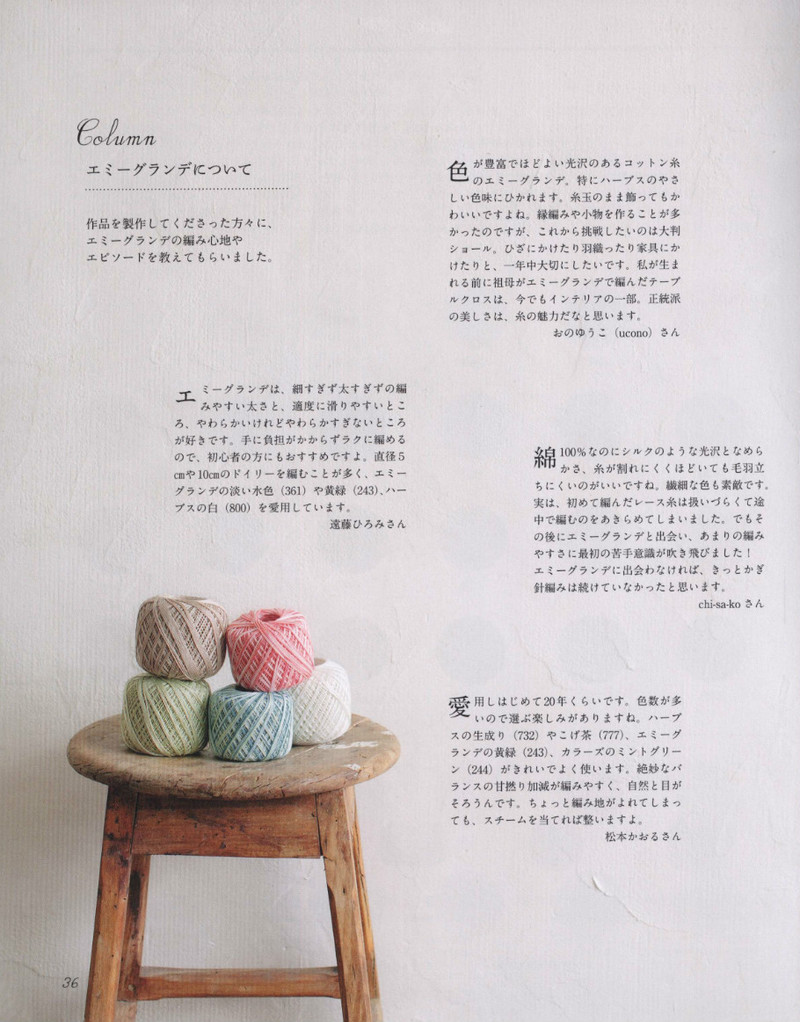 Column
エミーグランデについて
作品を製作してくださった方々に、
エミーグランデの編み心地や
エピソードを教えてもらいました。
エミーグランデは、細すぎず太すぎずの編
みやすい太さと、適度に滑りやすいとこ
ろ、やわらかいけれどやわらかすぎないところ
が好きです。手に負担がかからずラクに編める
ので、初心者の方にもおすすめですよ。直径5
㎝や10㎝のドイリーを編むことが多く、エミー
グランデの淡い水色（361）や黄緑（243）、ハー
ブスの白（800）を愛用しています。
遠藤ひろみさん
色が豊富でほどよい光沢のあるコットン糸
のエミーグランデ。特にハーブスのやさ
しい色味にひかれます。糸玉のまま飾ってもか
わいいですよね。縁編みや小物を作ることが多
かったのですが、これから挑戦したいのは大判
ショール。ひざにかけたり羽織ったり家具にか
けたりと、一年中大切にしたいです。私が生ま
れる前に祖母がエミーグランデで編んだテーブ
ルクロスは、今でもインテリアの一部。正統派
の美しさは、糸の魅力だなと思います。
おのゆうこ（ucono）さん
綿100％なのにシルクのような光沢となめら
かさ、糸が割れにくくほどいても毛羽立
ちにくいのがいいですね。繊細な色も素敵です。
実は、初めて編んだレース糸は扱いづらくて途
中で編むのをあきらめてしまいました。でもそ
の後にエミーグランデと出会い、あまりの編み
やすさに最初の苦手意識が吹き飛びました！
エミーグランデに出会わなければ、きっとかぎ
針編みは続けていなかったと思います。
chi-sa-ko さん
愛用しはじめて20年くらいです。色数が多
いので選ぶ楽しみがありますね。ハーブ
スの生成り（732）やこげ茶（777）、エミーグ
ランデの黄緑（243）、カラーズのミントグリー
ン（244）がきれいでよく使います。絶妙なバ
ランスの甘撚り加減が編みやすく、自然と目が
そろうんです。ちょっと編み地がよれてしまっ
ても、スチームを当てれば整いますよ。
松本かおるさん
36